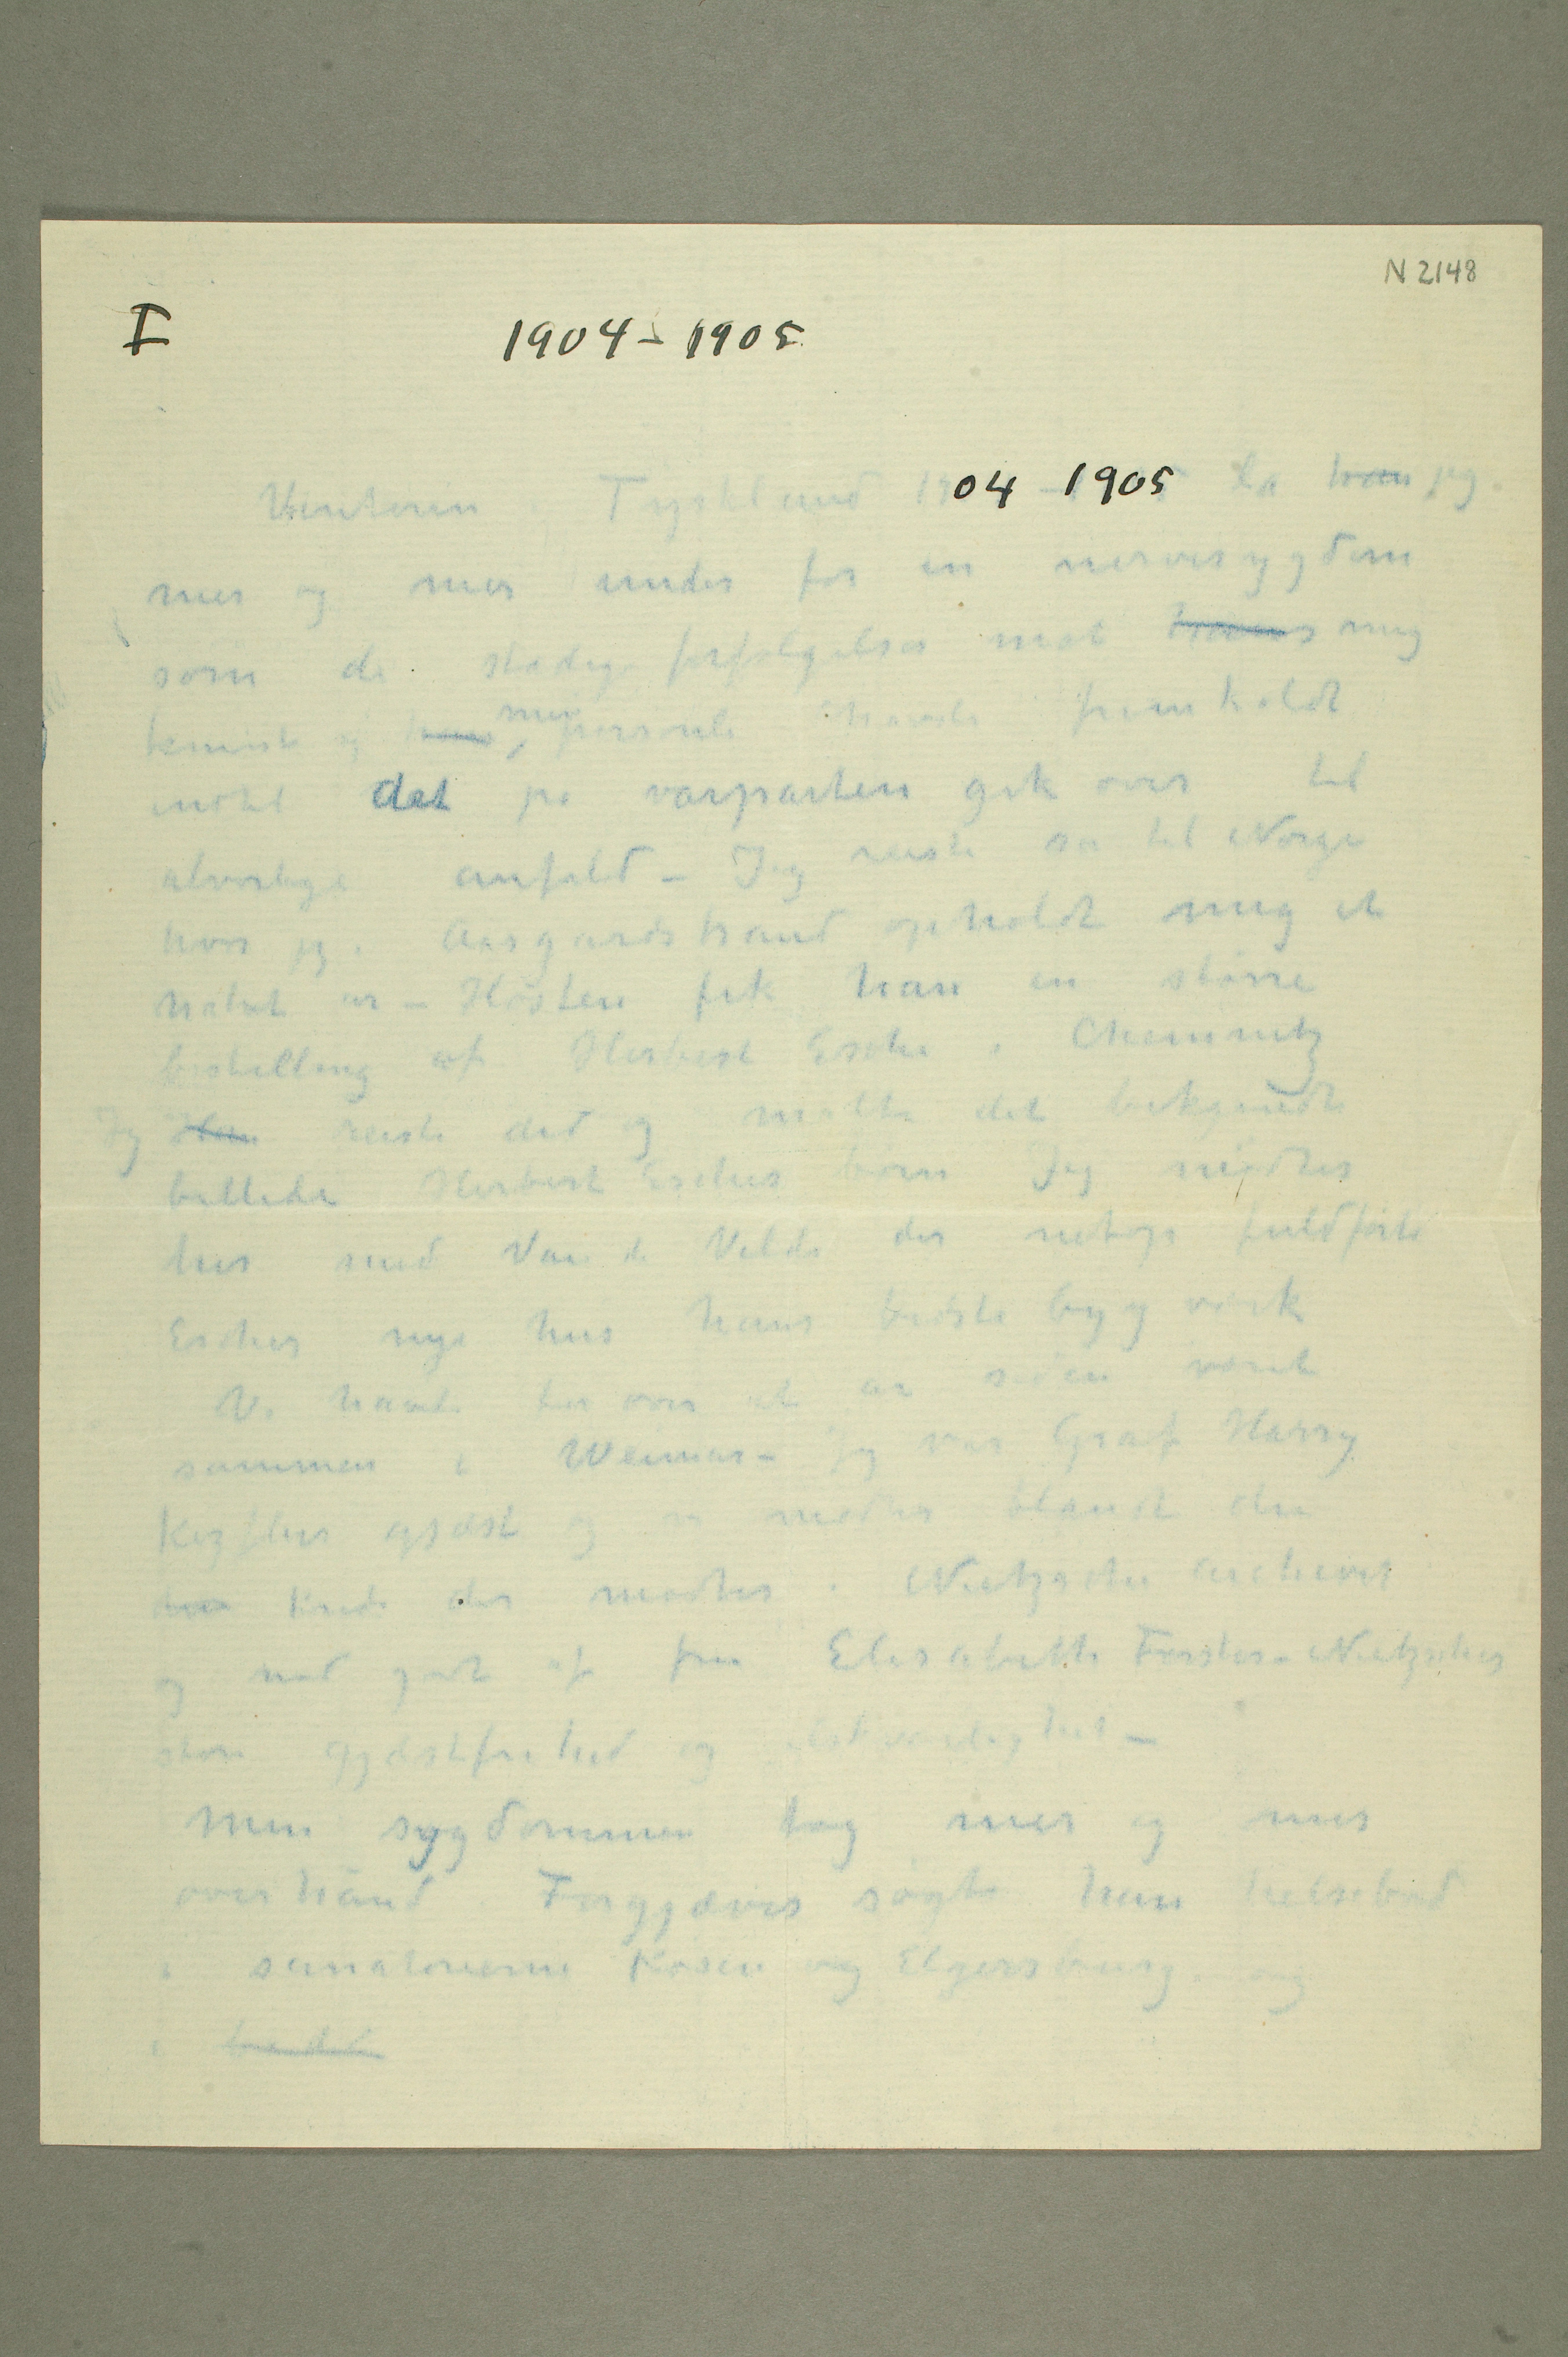 N 2148
I 1904–1905
Vinteren i Tyskland 1904–1905 la han jeg
mer og mer under for en nervesygdom
som de stadige forfølgelser mot hans mig
kunst og hans min person havde fremkaldt
indtil det på vårparten gik over til
alvorlige anfald – Jeg reiste så til Norge
hvor jeg i Aasgardstrand opholdt mig et
halvt år – Høsten fik han en større
bestilling af Herbert Esche i Chemnitz
Jeg Han reiste did og malte det bekjendte
billede Herbert Esches børn Jeg mødtes
her med Van de Velde der netop fuldførte
Esches nye hus hans bedste bygværk
Vi havde for over et år siden været
sammen i Weimar – Jeg var Graf Harry
Kesslers gjæst og vi mødtes blandt den
kreds der mødtes i Nietzsche archivet
og nød godt af fru Elisabeth Førster-Nietzsches
store gjæstfrihed og elskværdighet –
Men sygdommen tog mer og mer
overhånd. Forgjæves søgte han helsebod
i sanatorierne Kösen og Elgersburg. og
i